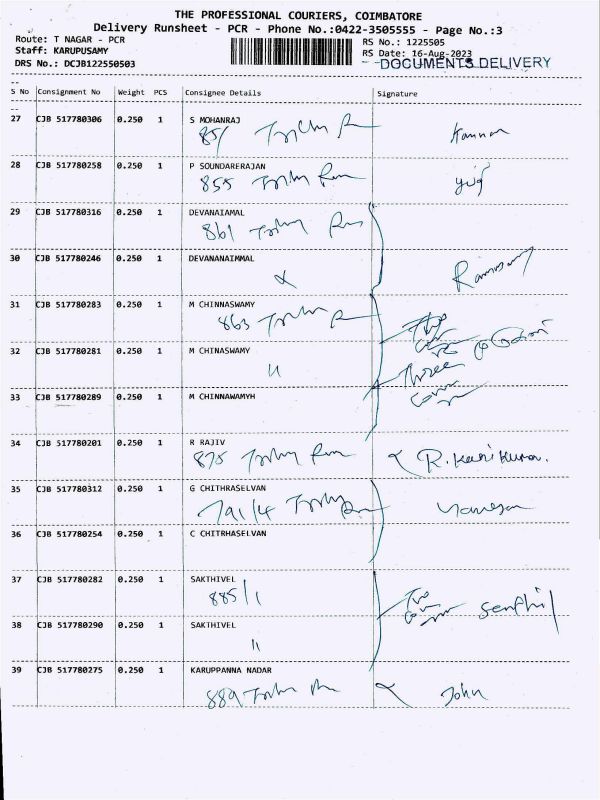 THE PROFESSIONAL COURIERS, COIMBATORE
Delivery Runsheet - PCR - Phone No.:0422-3505555 - Page No.:3
Route: T NAGAR - PCR
RS No.: 1225505
Staff: KARUPUSAMY
RS Date: 16-Aug-2023
DRS No.: DCJB122550503
DOCUMENTS DELIVERY
S No Consignment No Weight PCS Consignee Details Signature
27 CJB 517780306 0.250 1 S MOHANRAJ
851 Kannan
28 CJB 517780258 0.250 1 P SOUNDARERAJAN
855
29 CJB 517780316 0.250 1 DEVANAIAMAL
861
30 CJB 517780246 0.250 1 DEVANANAIMMAL
Ramasamy
31 CJB 517780283 0.250 1 M CHINNASWAMY
863
32 CJB 517780281 0.250 1 M CHINASWAMY
11 Three
33 CJB 517780289 0.250 1 M CHINNAWAMYH
34 CJB 517780201 0.250 1 R RAJIV
875
35 CJB 517780312 0.250 1 G CHITHRASELVAN
791/4
36 CJB 517780254 0.250 1 C CHITRHASELVAN
37 CJB 517780282 0.250 1 SAKTHIVEL
885/1 Senthil
38 CJB 517780290 0.250 1 SAKTHIVEL
11
39 CJB 517780275 0.250 1 KARUPPANNA NADAR
889 John